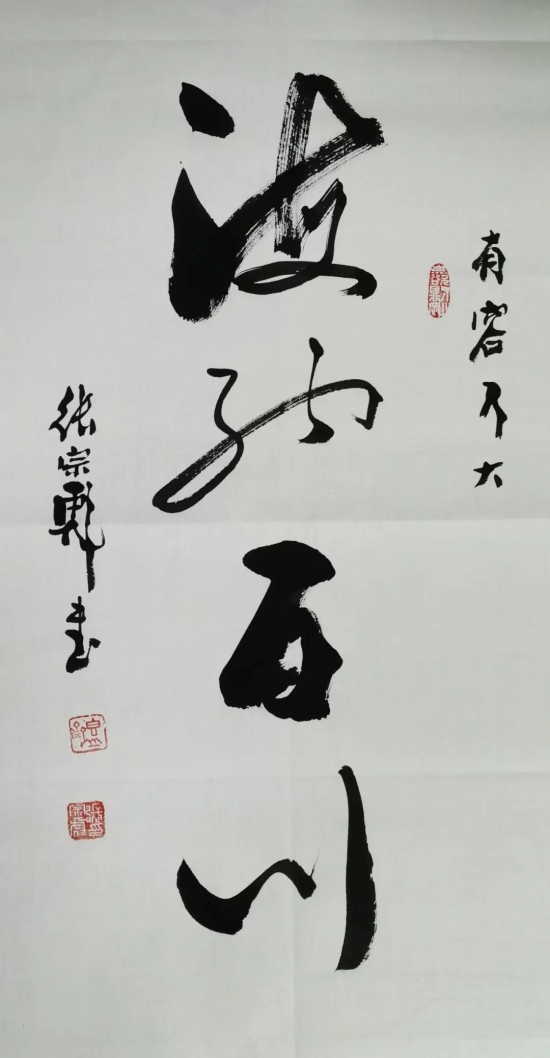 有容乃大
海纳百川
张宗书